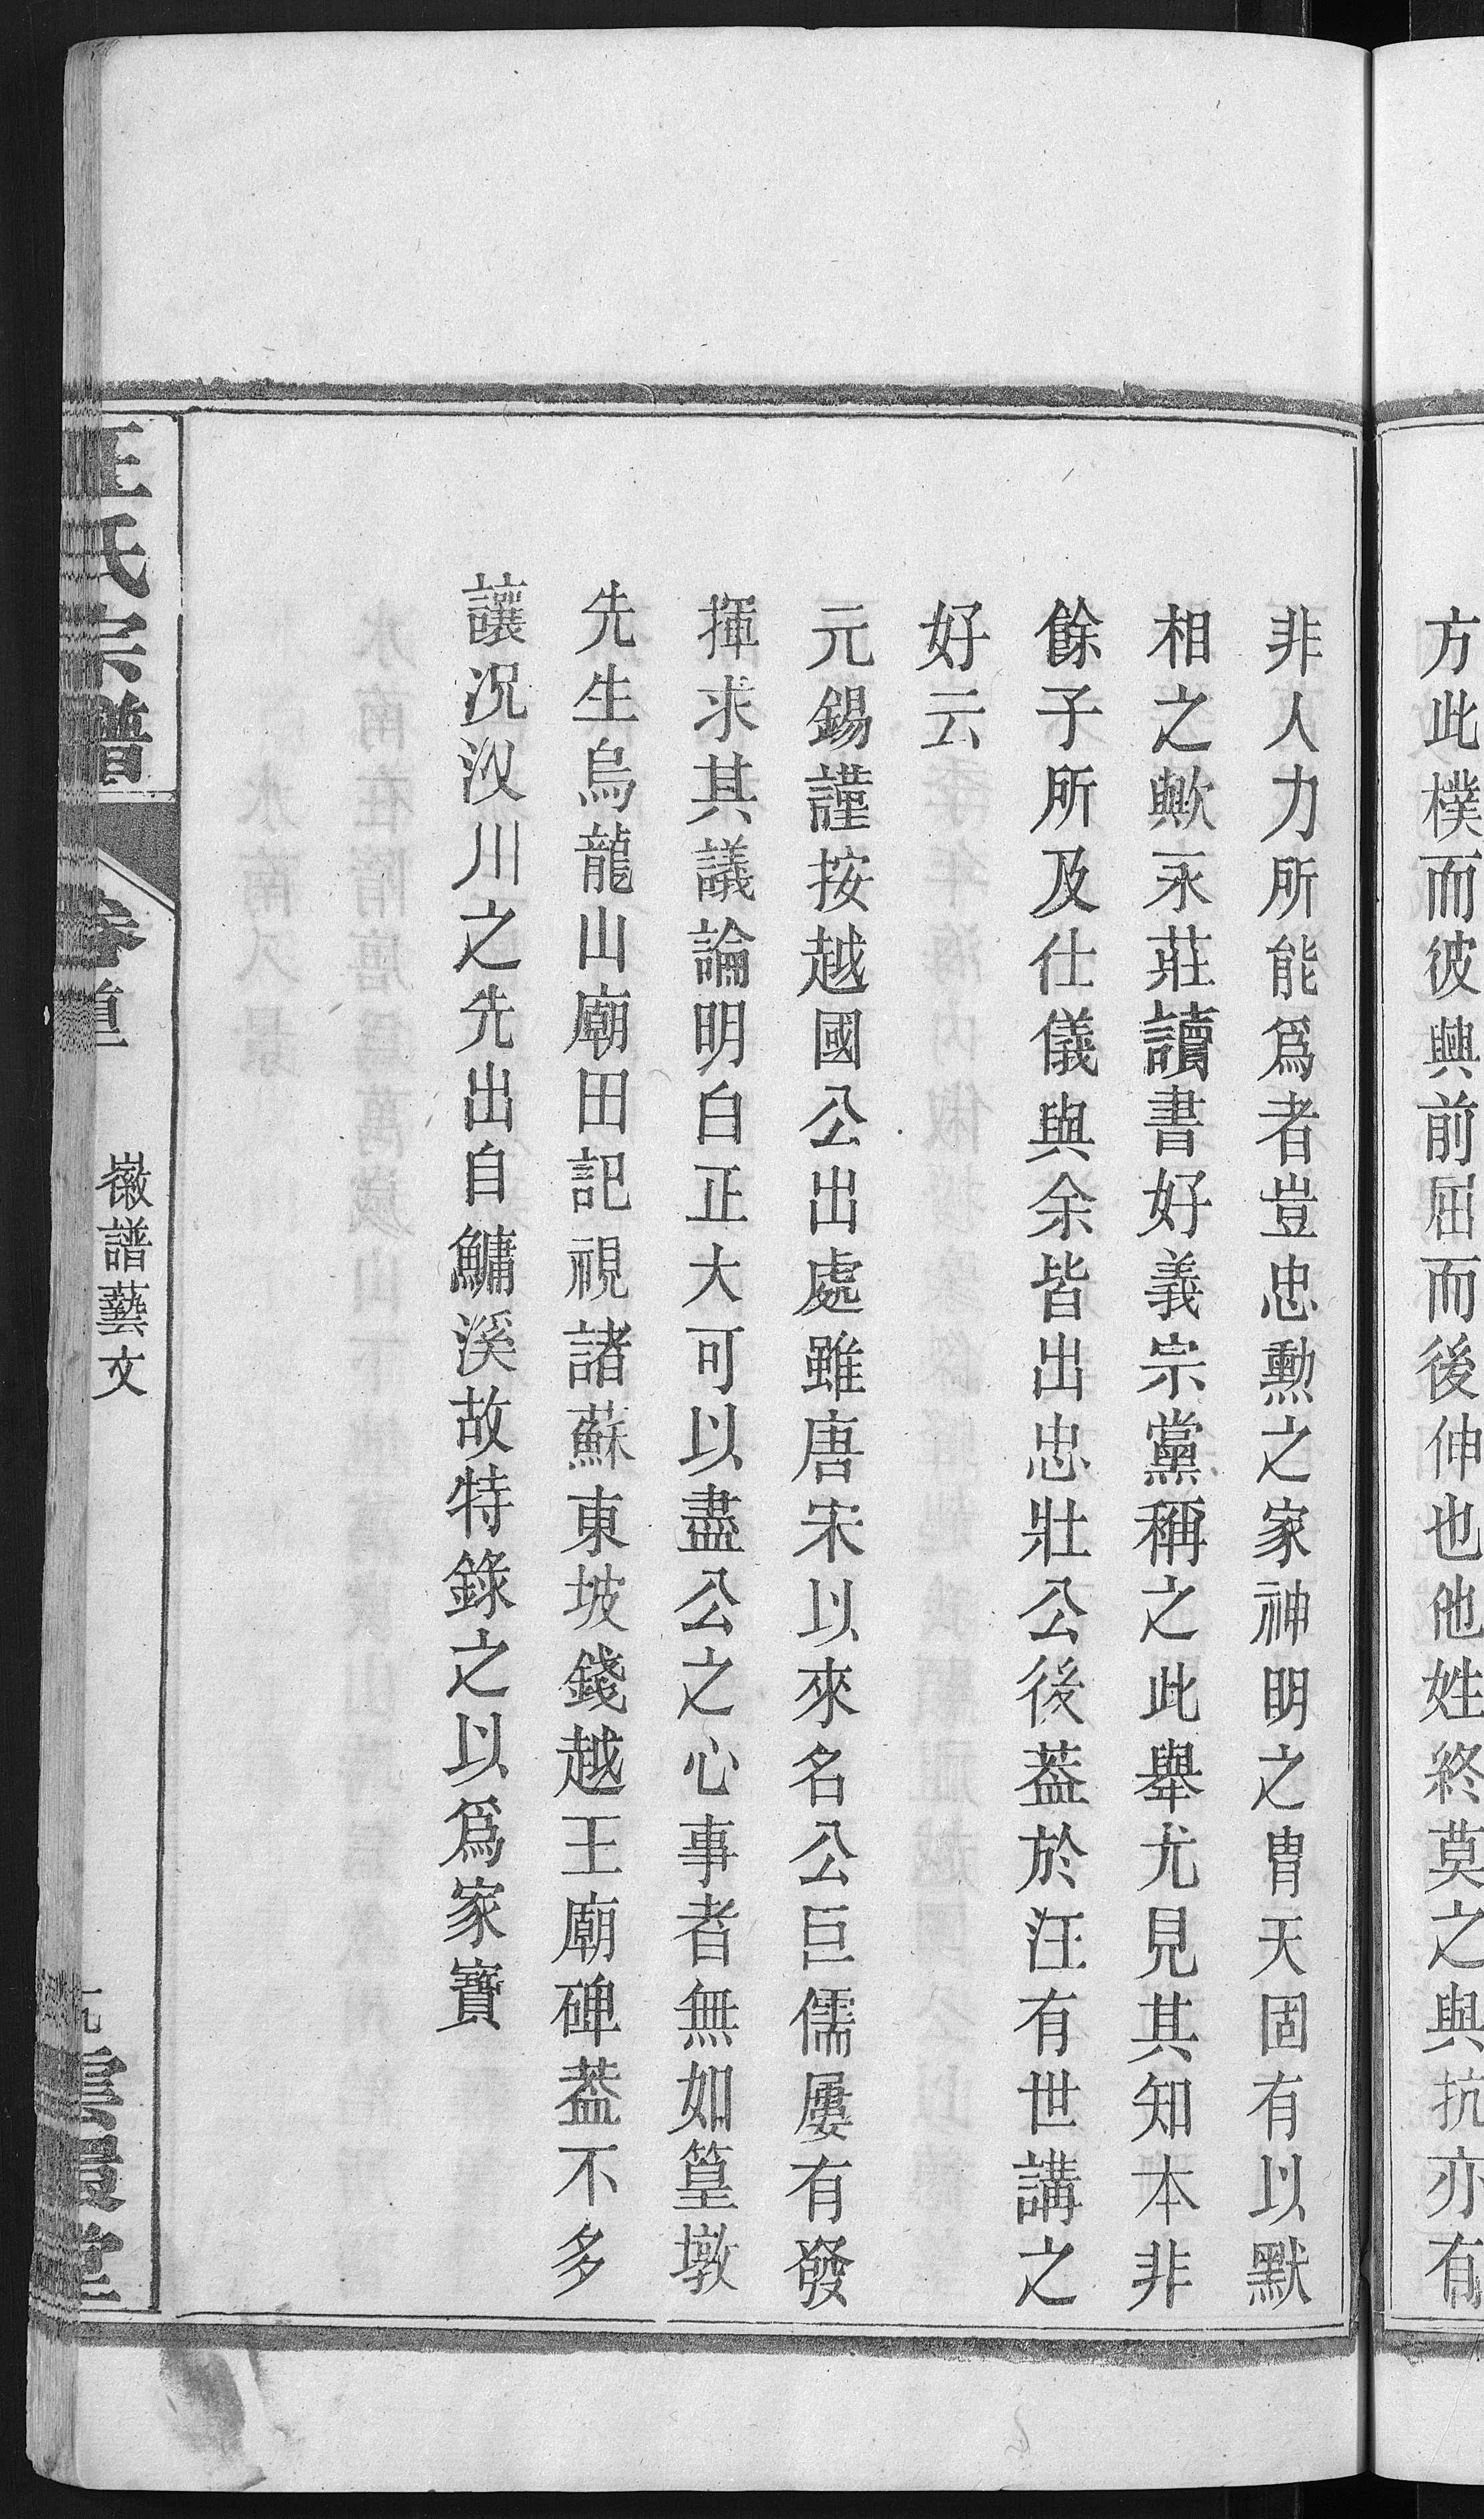 方此樸而彼興前屈而後伸也他姓終莫之與抗亦有
非人力所能爲者豈忠勳之家神明之胄天固有以默
相之歟永莊讀書好義宗黨稱之此舉尤見其知本非
餘子所及仕儀與余皆出忠壯公後葢於汪有世講之
好云
元錫謹按越國公出處雖唐宋以來名公巨儒屢有發
揮求其議論明白正大可以盡公之心事者無如篁墩
先生烏龍山廟田記視諸蘇東坡錢越王廟碑葢不多
讓況汊川之先出自鱅溪故特錄之以爲家寶
汪氏宗譜
卷首
徽譜藝文
九
雲環堂